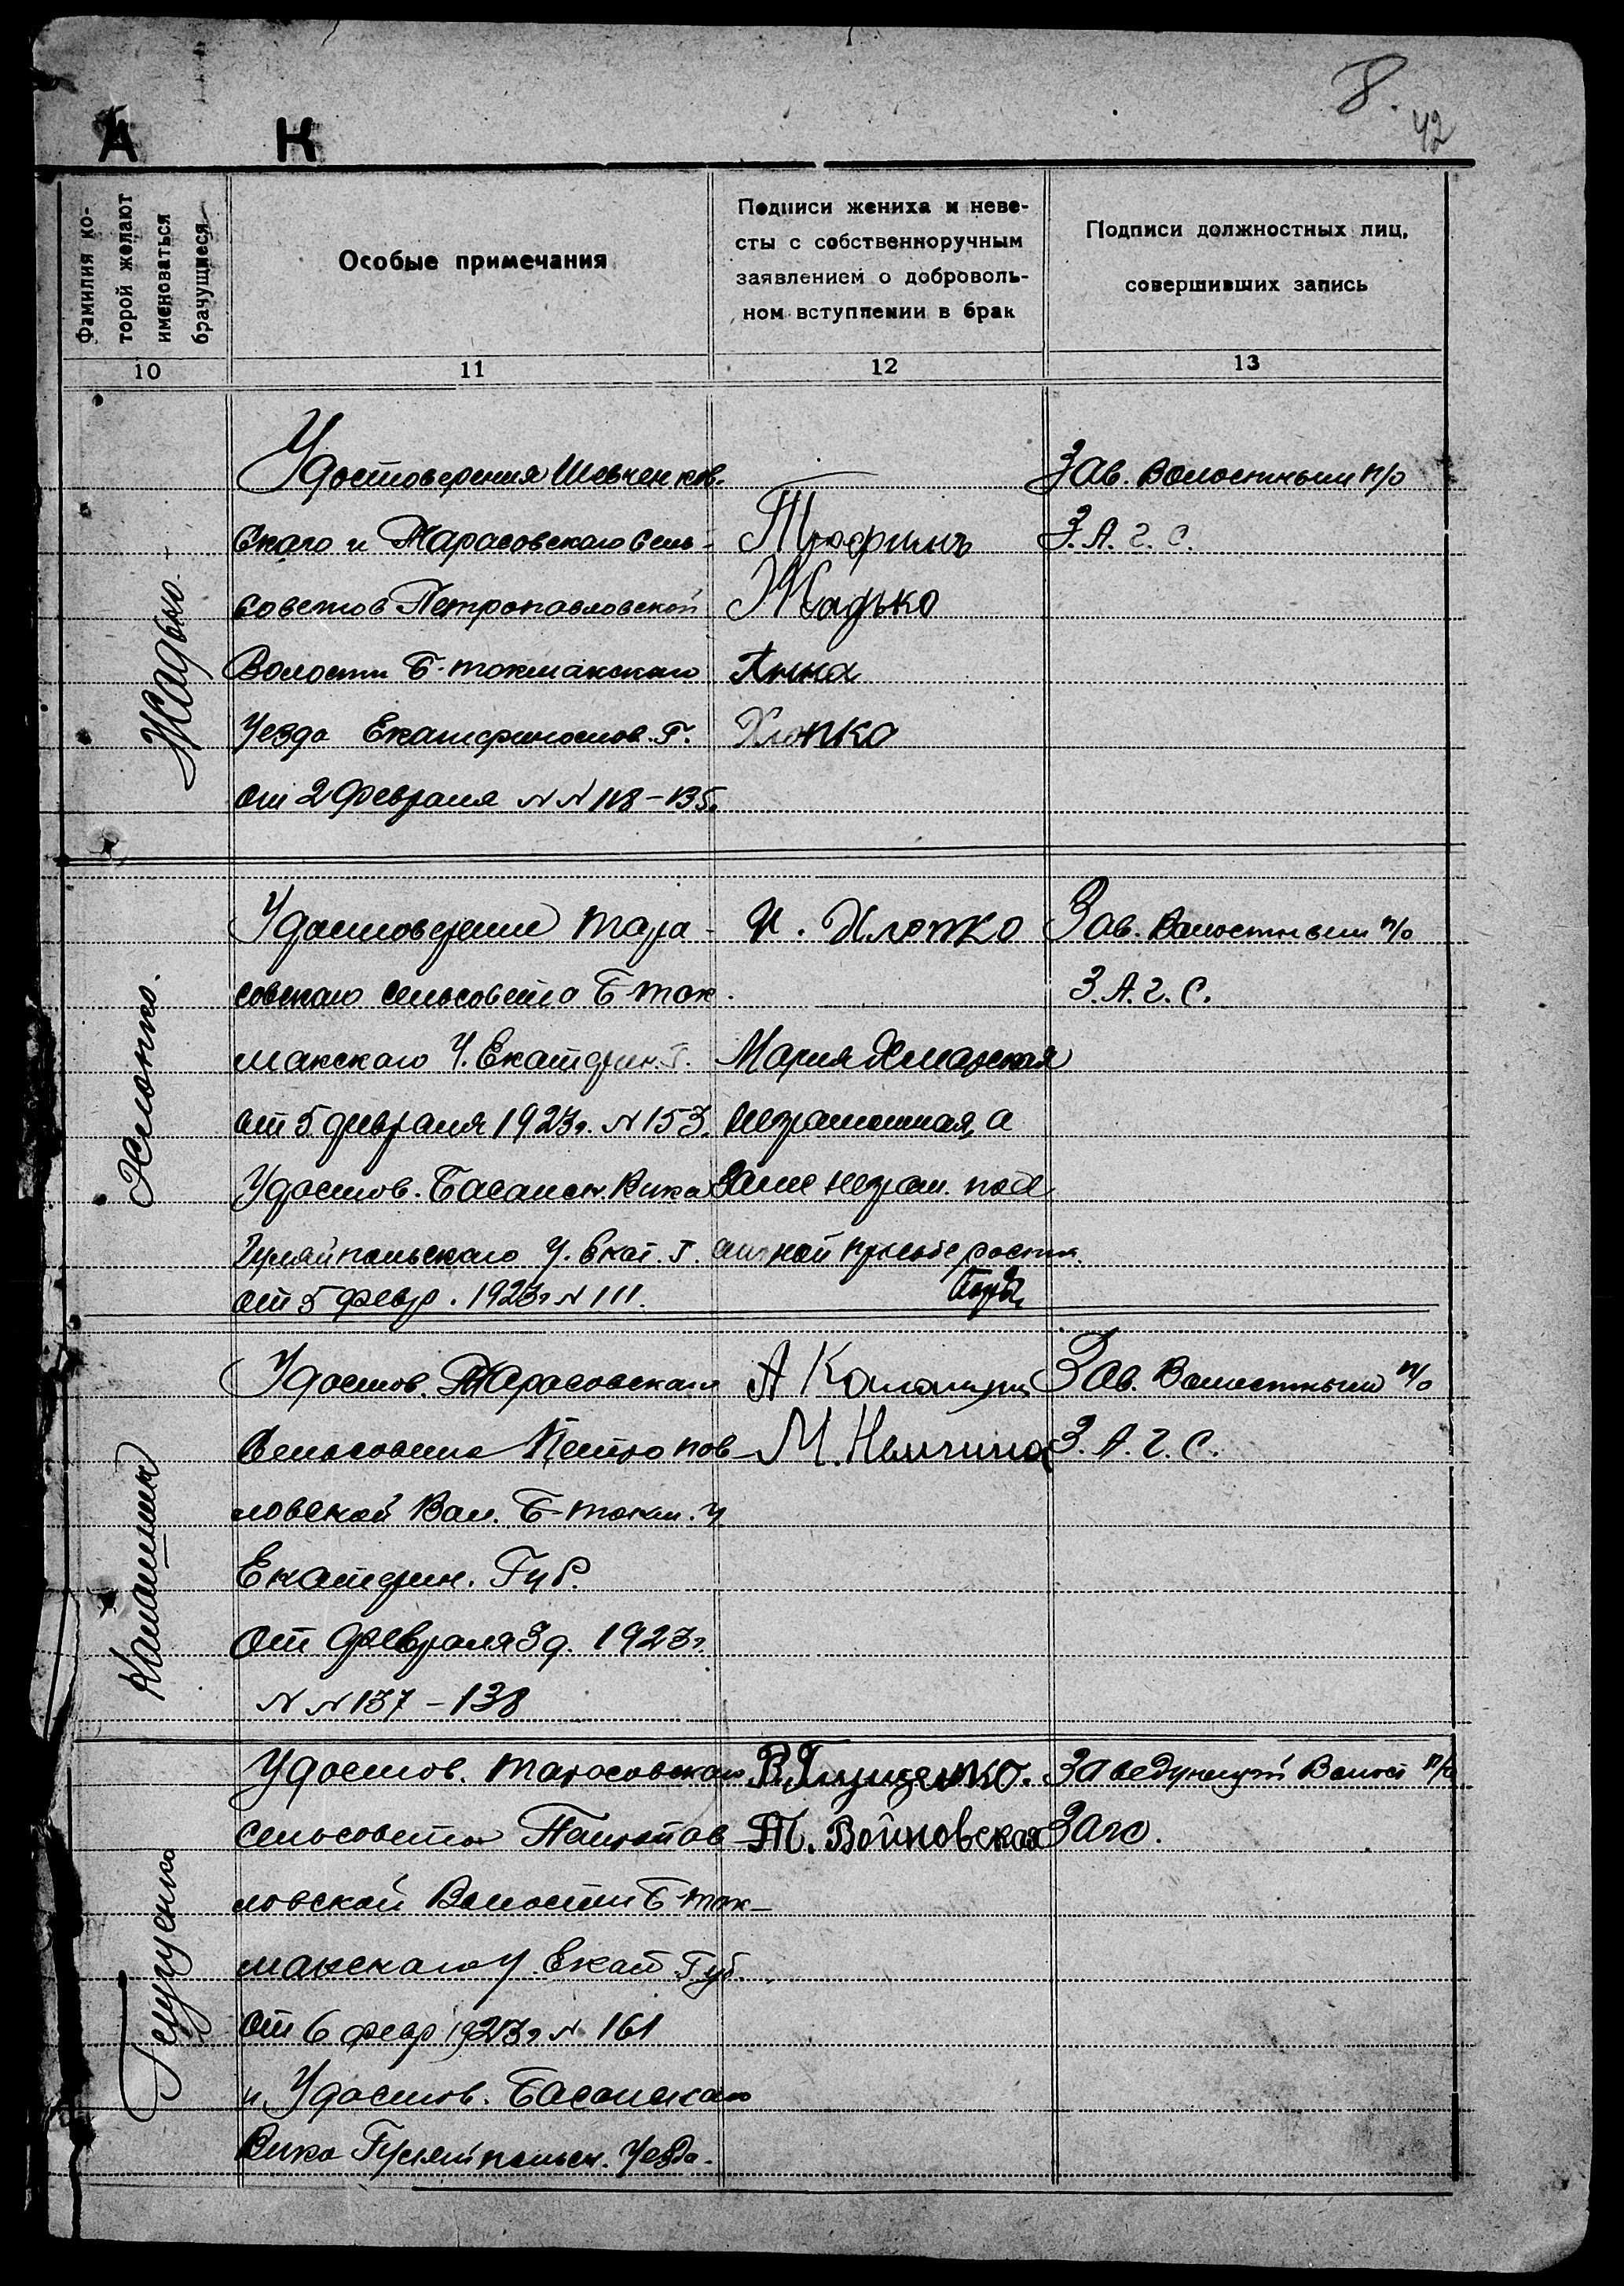 8.
42
А К
Фамилия ко-
торой желают
именоваться
брачущиеся
Особые примечания
Подписи жениха и неве-
сты с собственноручным
заявлением о доброволь-
ном вступлении в брак
Подписи должностных лиц,
совершивших запись
10
11
12
13
Жадько
Удостоверения Шевченков-
скаго и Тарасовскаго сель-
советов Петропавловской
Волости Б-токмакскаго
Уезда Екатеринослов. Г.
от 2 Февраля N N 118-135.
Трофимъ
Жадько
Анна
Хлопко
Зав. Волостным п/о
З. А. Г. С.
Хлопко.
Удостоверение Тара-
совскаго сельсовета Б-ток.
макскаго У. Екатерин. Г.
от 5 февраля 1923г. N 153.
Удостов. Басанск. Вика
Гуляйпольскаго У. Екат. Г.
от 5 февр. 1923г N 111.
И. Хлопко
Мария
неграмотная, а
личной прозьбе
Зав. Волостным п/о
З. А. Г. С.
Удостов. Тарасовскаго
Сельсовета Петропав-
ловской Вол. Б-токм. У
Екатерин. Губ.
от февраля 3 д. 1923г.
N N 137-138
А
М. Немчина
Зав. Волостным п/о
З. А. Г. С.
Глущенко
Удостов. Тарасовскаго
сельсовета Петропав-
ловской Волости Б-ток-
макскаго У. Екат. Губ.
от 6 февр 1923г N 161
и Удостов. Басанскаго
Вика Гуляйпольск. Уезда.
В. Глущенко.
Т. Войновская
Заведующий Волост п/о
Загс.